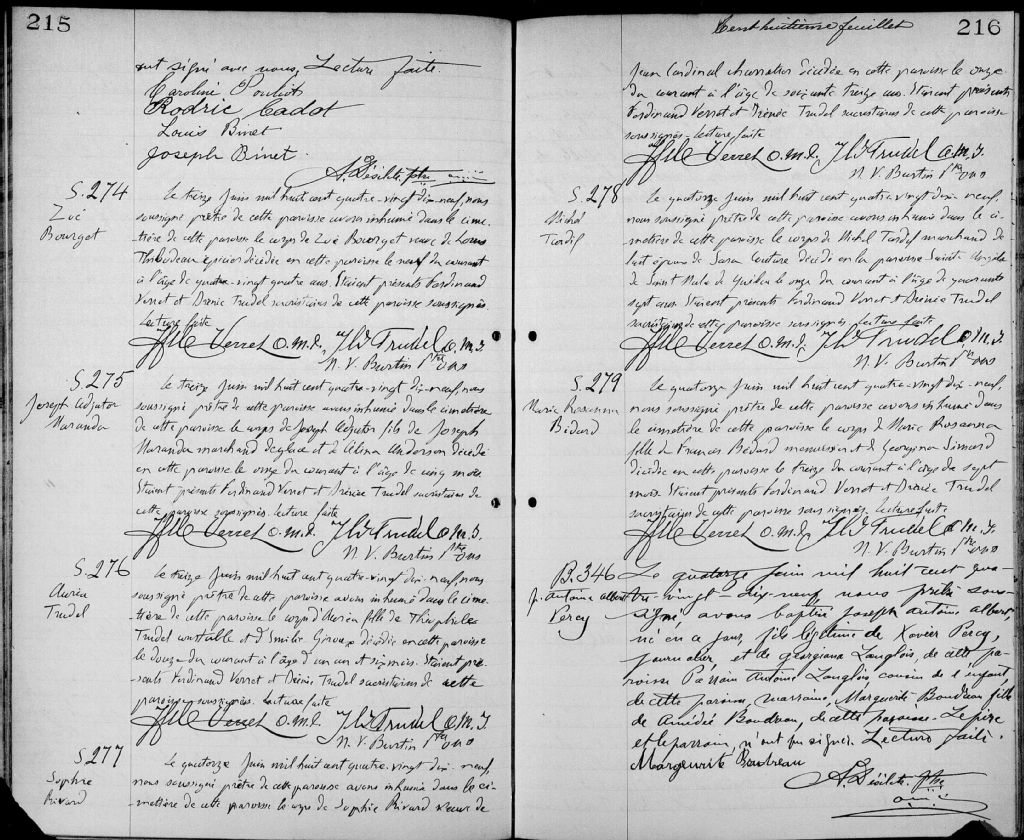 215
ont signé avec nous, Lecture faite.
Caroline Pouliot
Rodric Cadot
Louis Binet
Joseph Binet.
A. Désilets, ptre
S. 274
Zoé
Bourget
Le treize Juin mil huit cent quatre-vingt dix-neuf, nous
soussigné prêtre de cette paroisse avons inhumé dans le cime-
tière de cette paroisse le corps de Zoé Bourget veuve de Louis
Thibodeau épicier décédée en cette paroisse le neuf du courant
à l'âge de quatre-vingt quatre ans. Etaient présents Ferdinand
Verret et Drénée Trudel sacristains de cette paroisse soussignés.
Lecture faite
Verret o.m.I. Trudel o.M.I.
N. V. Burtin Ptre OMI
S. 275
Joseph Adjutor
Maranda
Le treize Juin mil huit cent quatre-vingt dix-neuf, nous
soussigné prêtre de cette paroisse avons inhumé dans le cimetière
de cette paroisse le corps de Joseph Adjutor fils de Joseph
Maranda marchand de glace et de Alina Anderson décédé
en cette paroisse le onze du courant à l'âge de cinq mois
Etaient présents Ferdinand Verret et Drénée Trudel sacristains de
cette paroisse soussignés. lecture faite
Verret o.m.I. Trudel o.M.I.
N. V. Burtin Ptre OMI
S. 276
Auréa
Trudel
Le treize Juin mil huit cent quatre-vingt dix-neuf, nous
soussigné prêtre de cette paroisse avons inhumé dans le cime-
tière de cette paroisse le corps d'Auréa fille de Théophile
Trudel constable et d'Emilie Giroux décédée en cette paroisse
le douze du courant à l'âge d'un an et six mois. Etaient pré-
sents Ferdinand Verret et Drénée Trudel sacristains de cette
paroisse soussignés. lecture faite
Verret o.m.I. Trudel o.M.I.
N. V. Burtin Ptre OMI
S. 277
Sophie
Rivard
Le quatorze Juin mil huit cent quatre-vingt dix-neuf,
nous soussigné prêtre de cette paroisse avons inhumé dans le ci-
metière de cette paroisse le corps de Sophie Rivard veuve de
Cent huitième feuillet
216
Jean Cardinal charretier décédée en cette paroisse le onze
du courant à l'âge de soixante treize ans. Etaient présents
Ferdinand Verret et Drénée Trudel sacristains de cette paroisse
soussignés. lecture faite
Verret o.m.I. Trudel o.M.I.
N. V. Burtin Ptre OMI
S. 278
Michel
Tardif
Le quatorze Juin mil huit cent quatre-vingt dix-neuf,
nous soussigné prêtre de cette paroisse avons inhumé dans le ci-
metière de cette paroisse le corps de Michel Tardif marchand de
lait époux de Sara Couture décédé en la paroisse Sainte Angèle
de Saint Malo de Québec le onze du courant à l'âge de quarante
sept ans. Etaient présents Ferdinand Verret et Drénée Trudel
sacristains de cette paroisse soussignés. Lecture faite.
Verret o.m.I. Trudel o.M.I.
N. V. Burtin Ptre OMI
S. 279
Marie Rosanna
Bédard
Le quatorze Juin mil huit cent quatre-vingt dix-neuf,
nous soussigné prêtre de cette paroisse avons inhumé dans
le cimetière de cette paroisse le corps de Marie Rosanna
fille de Francis Bédard menuisier et de Georgina Simard
décédée en cette paroisse le treize du courant à l'âge de sept
mois. Etaient présents Ferdinand Verret et Drénée Trudel
sacristains de cette paroisse soussignés. lecture faite.
Verret o.m.I. Trudel o.M.I.
N. V. Burtin Ptre OMI
B. 346
J. Antoine Albert
Percy
Le quatorze Juin mil huit cent qua-
tre-vingt-dix-neuf nous prêtre sous-
signé, avons baptisé Joseph Antoine Albert,
né en ce jour, fils légitime de Xavier Percy,
journalier, et de Georgiana Langlois, de cette pa-
roisse Parrain Antoine Langlois cousin de l'enfant,
de cette paroisse, marraine, Marguerite Boudreau fille
de Amédée Boudreau, de cette paroisse. Le père
et le parrain, n'ont pu signer. Lecture faite.
Marguerite Boudreau
A. Désilets, Ptre